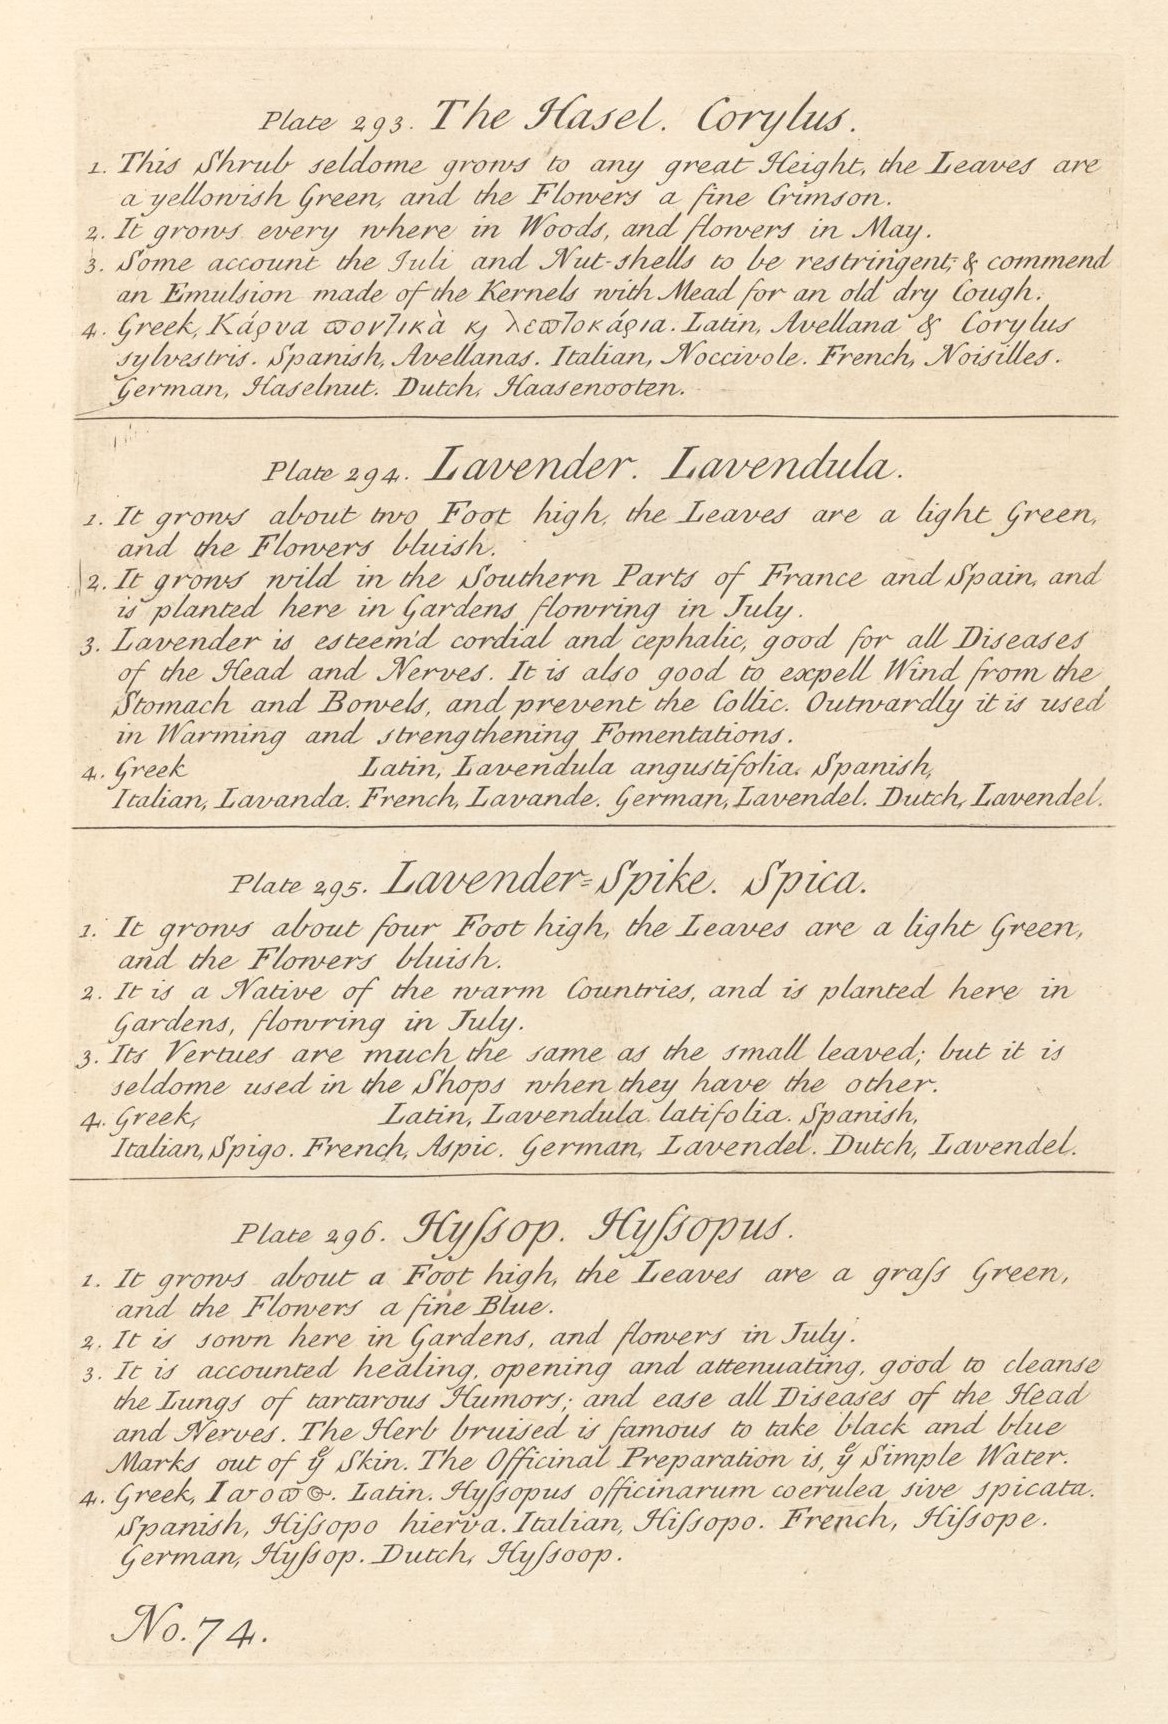 Plate 293. The Hasel. Corylus.
1. This Shrub seldome grows to any great Height, the Leaves are
a yellowish Green, and the Flowers a fine Crimson.
2. It grows every where in Woods, and flowers in May.
3. Some account the Iuli and Nut-shells to be restringent; & commend
an Emulsion made of the Kernels with Mead for an old dry Cough.
4. Greek, Κάρυα ϖονλικὰ ϗ λεϖλοκάρια. Latin, Avellana & Corylus
sylvestris. Spanish, Avellanas. Italian, Noccivole. French, Noisilles.
German, Haselnut. Dutch, Haasenooten.
Plate 294. Lavender. Lavendula.
1. It grows about two Foot high, the Leaves are a light Green,
and the Flowers bluish.
2. It grows wild in the Southern Parts of France and Spain, and
is planted here in Gardens flowring in July.
3. Lavender is esteem'd cordial and cephalic, good for all Diseases
of the Head and Nerves. It is also good to expell Wind from the
Stomach and Bowels, and prevent the Collic. Outwardly it is used
in Warming and strengthening Fomentations.
4. Greek Latin, Lavendula angustifolia. Spanish,
Italian, Lavanda. French, Lavande. German, Lavendel. Dutch, Lavendel.
Plate 295. Lavender=Spike. Spica.
1. It grows about four Foot high, the Leaves are a light Green,
and the Flowers bluish.
2. It is a Native of the warm Countries, and is planted here in
Gardens, flowring in July.
3. Its Vertues are much the same as the small leaved; but it is
seldome used in the Shops when they have the other.
4. Greek, Latin, Lavendula latifolia. Spanish,
Italian, Spigo. French, Aspic. German, Lavendel. Dutch, Lavendel.
Plate 296. Hyſsop. Hyſsopus.
1. It grows about a Foot high, the Leaves are a graſs Green,
and the Flowers a fine Blue.
2. It is sown here in Gardens, and flowers in July.
3. It is accounted healing, opening and attenuating, good to cleanse
the Lungs of tartarous Humors; and ease all Diseases of the Head
and Nerves. The Herb bruised is famous to take black and blue
Marks out of yͤ Skin. The Officinal Preparation is, yͤ Simple Water.
4. Greek, Latin. Hyſsopus officinarum coerulea sive spicata.
Spanish, Hiſsopo hierva. Italian, Hiſsopo. French, Hiſsope.
German, Hyſsop. Dutch, Hyſsoop.
No. 74.